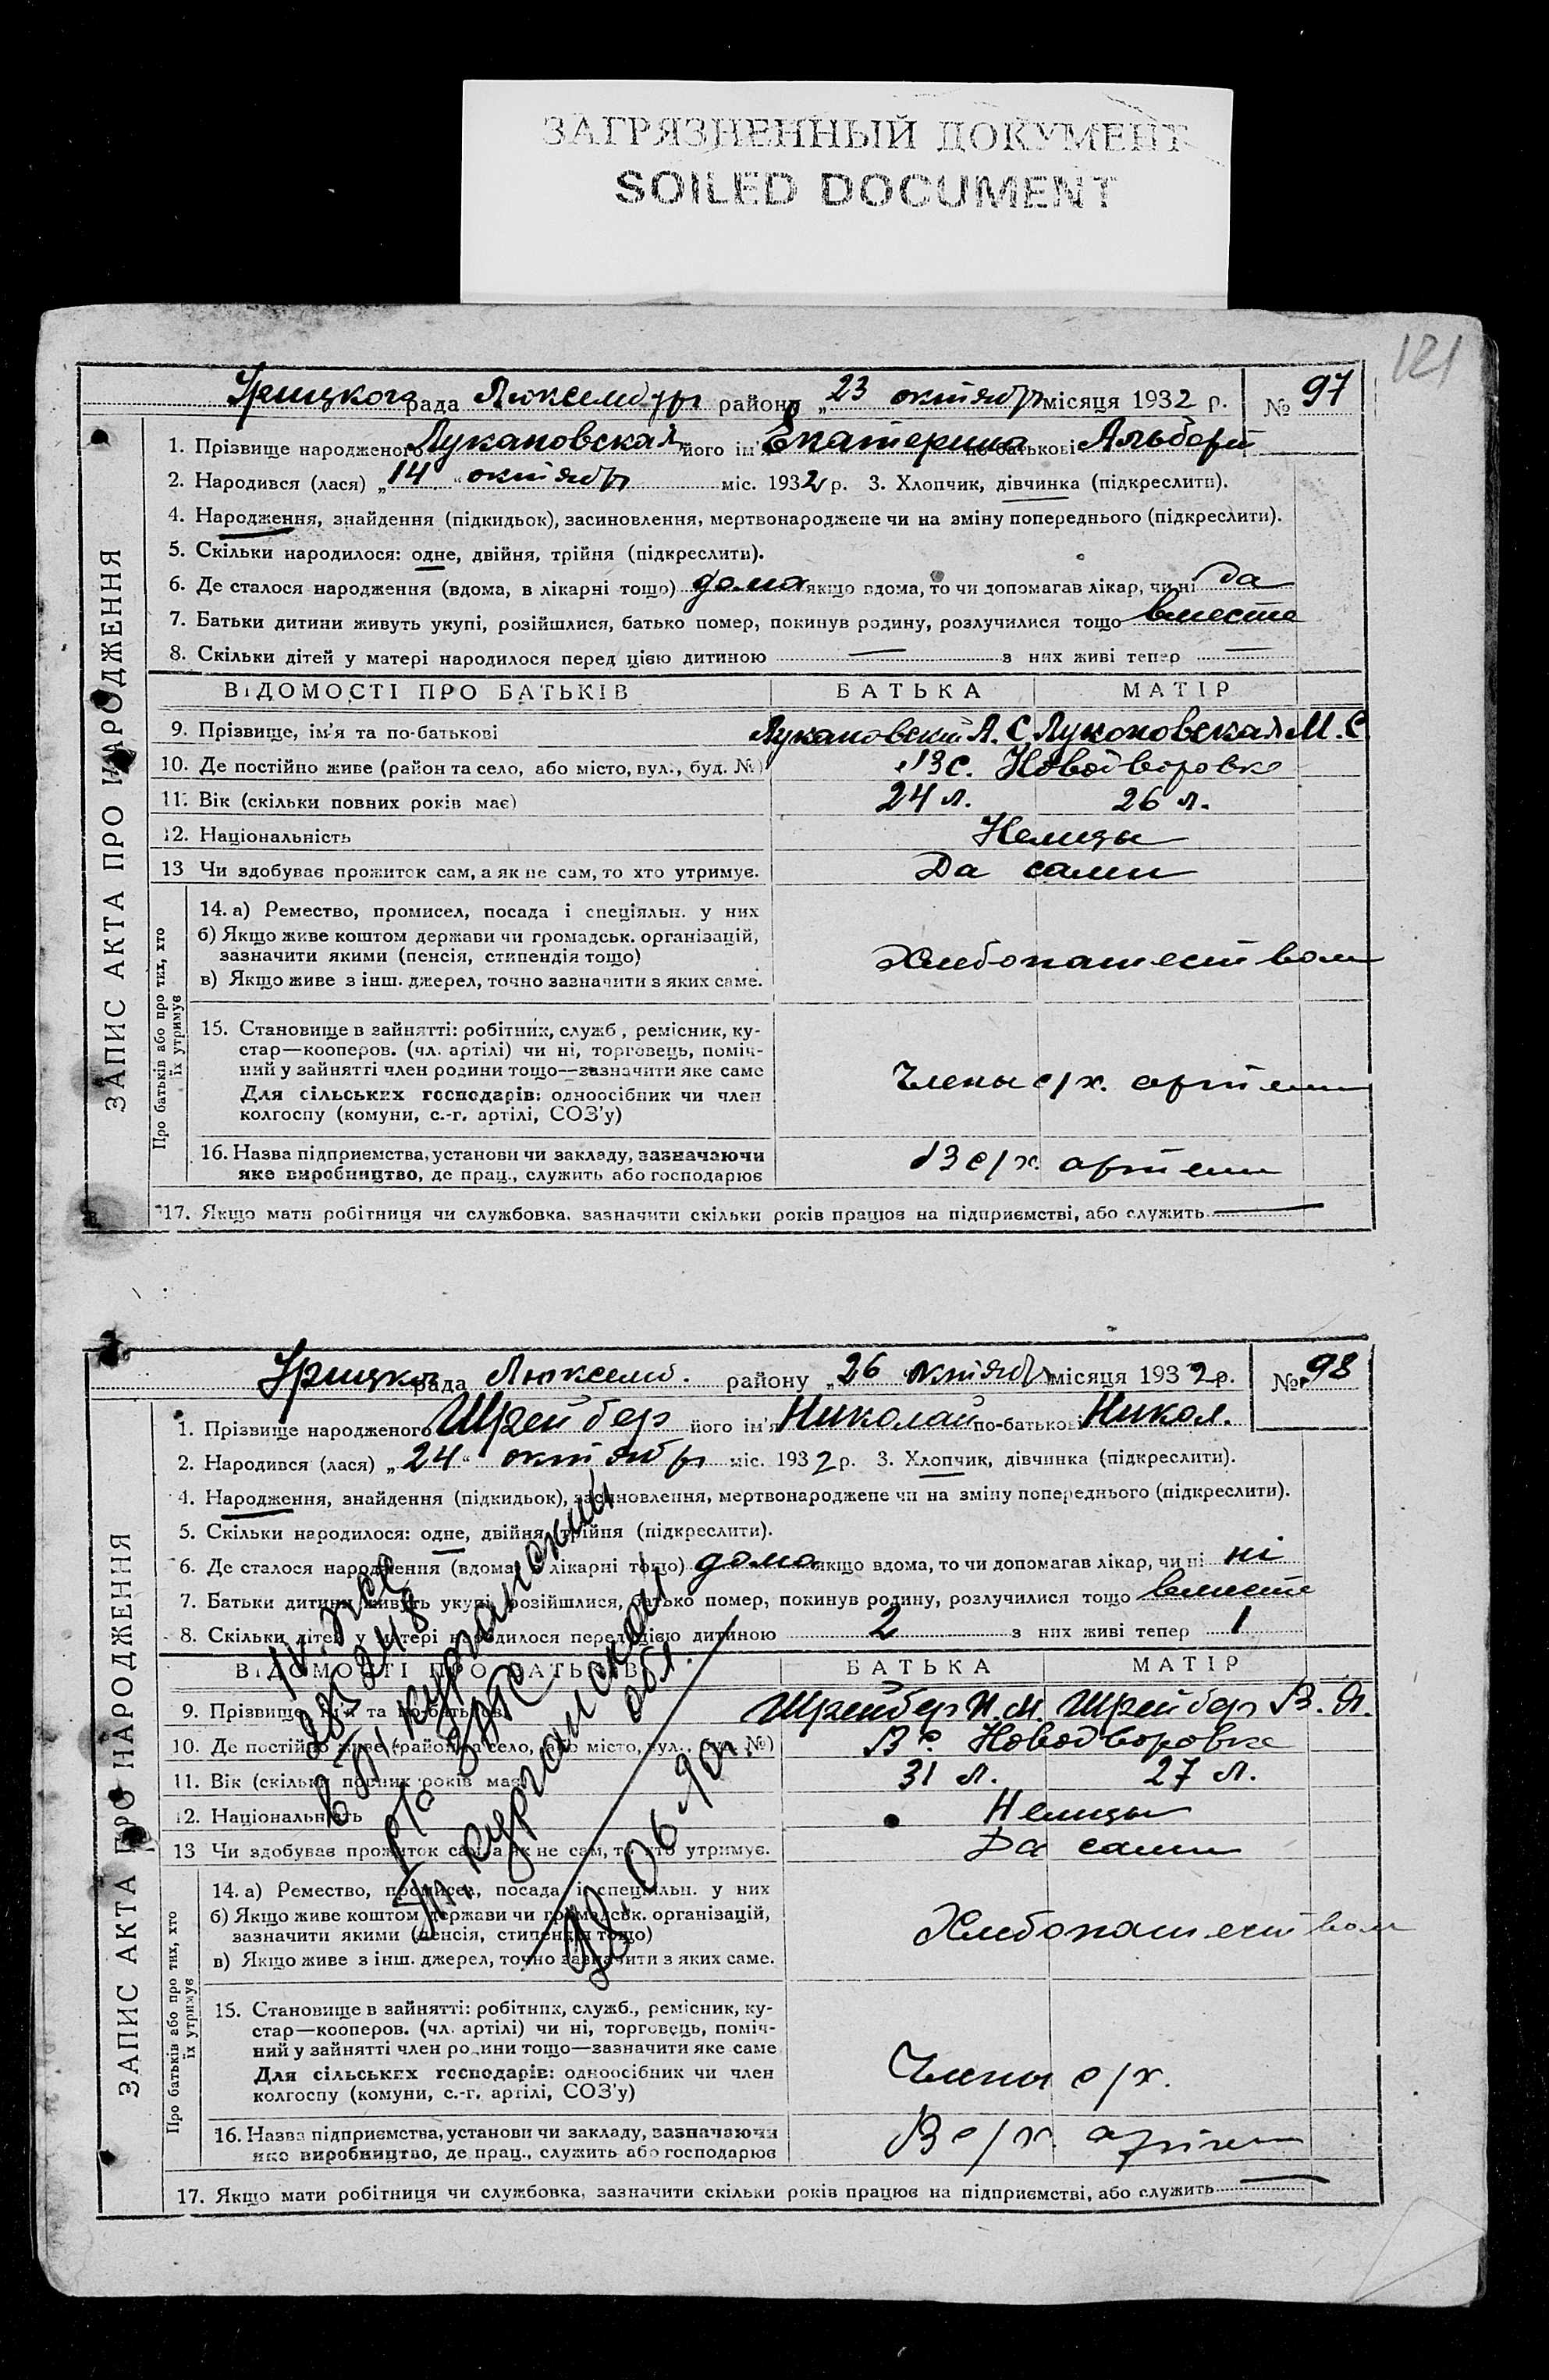 ЗАГРЯЗНЕННЫЙ ДОКУМЕНТ
SOILED DOCUMENT
121
ЗАПИС АКТА ПРО НАРОДЖЕННЯ
рада Люксембур району „23 октябр місяця 1932 р. № 97
1. Прізвище народженого Лукановская його ім'я Екатерина по-батькові Альберт
2. Народився (лася) „14“ октябр міс. 1932 р. 3. Хлопчик, дівчинка (підкреслити).
4. Народження, знайдення (підкидьок), засиновлення, мертвонароджене чи на зміну попереднього (підкреслити).
5. Скільки народилося: одне, двійня, трійня (підкреслити).
6. Де сталося народження (вдома, в лікарні тощо) дома якщо вдома, то чи допомагав лікар, чи ні да
7. Батьки дитини живуть укупі, розійшлися, батько помер, покинув родину, розлучилися тощо вместе
8. Скільки дітей у матері народилося перед цією дитиною — з них живі тепер —
ВІДОМОСТІ ПРО БАТЬКІВ БАТЬКА МАТІР
9. Прізвище, ім'я та по-батькові Лукановский А. С Лукановская М. С
10. Де постійно живе (район та село, або місто, вул., буд. №) В с. Новодворовке
11. Вік (скільки повних років має) 24 л. 26 л.
12. Національність Немцы
13 Чи здобуває прожиток сам, а як не сам, то хто утримує. Да сами
Про батьків або про тих, хто їх утримує
14. а) Ремество, промисел, посада і спеціяльн. у них
б) Якщо живе коштом держави чи громадськ. організацій,
зазначити якими (пенсія, стипендія тощо) Хлебопашеством
в) Якщо живе з інш. джерел, точно зазначити з яких саме.
15. Становище в зайнятті: робітник, служб., ремісник, ку-
стар—кооперов. (чл. артілі) чи ні, торговець, поміч-
ний у зайнятті член родини тощо—зазначити яке саме Члены с/х. артели
Для сільських господарів: одноосібник чи член
колгоспу (комуни, с.-г. артілі, СОЗ'у)
16. Назва підприємства, установи чи закладу, зазначаючи
яке виробництво, де прац., служить або господарює В с/х. артели
17. Якщо мати робітниця чи службовка, зазначити скільки років працює на підприємстві, або служить —
ЗАПИС АКТА ПРО НАРОДЖЕННЯ
рада Люксемб. району „26 октябр місяця 1932 р. № 98
1. Прізвище народженого Шрейбер його ім'я Николай по-батькові Никол.
2. Народився (лася) „24“ октябр міс. 1932 р. 3. Хлопчик, дівчинка (підкреслити).
4. Народження, знайдення (підкидьок), засиновлення, мертвонароджене чи на зміну попереднього (підкреслити).
5. Скільки народилося: одне, двійня, трійня (підкреслити).
6. Де сталося народження (вдома, в лікарні тощо) дома якщо вдома, то чи допомагав лікар, чи ні ні
7. Батьки дитини живуть укупі, розійшлися, батько помер, покинув родину, розлучилися тощо вместе
8. Скільки дітей у матері народилося перед цією дитиною 2 з них живі тепер 1
ВІДОМОСТІ ПРО БАТЬКІВ БАТЬКА МАТІР
9. Прізвище, ім'я та по-батькові Шрейбер Н. М. Шрейбер В. Я.
10. Де постійно живе (район та село, або місто, вул., буд. №) В с. Новодворовке
11. Вік (скільки повних років має) 31 л. 27 л.
12. Національність Немцы
13 Чи здобуває прожиток сам, а як не сам, то хто утримує. Да сами
Про батьків або про тих, хто їх утримує
14. а) Ремество, промисел, посада і спеціяльн. у них
б) Якщо живе коштом держави чи громадськ. організацій,
зазначити якими (пенсія, стипендія тощо) Хлебопашеством
в) Якщо живе з інш. джерел, точно зазначити з яких саме.
15. Становище в зайнятті: робітник, служб., ремісник, ку-
стар—кооперов. (чл. артілі) чи ні, торговець, поміч-
ний у зайнятті член родини тощо—зазначити яке саме
Для сільських господарів: одноосібник чи член Члены с/х.
колгоспу (комуни, с.-г. артілі, СОЗ'у)
16. Назва підприємства, установи чи закладу, зазначаючи
яке виробництво, де прац., служить або господарює В с/х. артели
17. Якщо мати робітниця чи службовка, зазначити скільки років працює на підприємстві, або служить —
курганский
ЗАГС
курганской
обл.